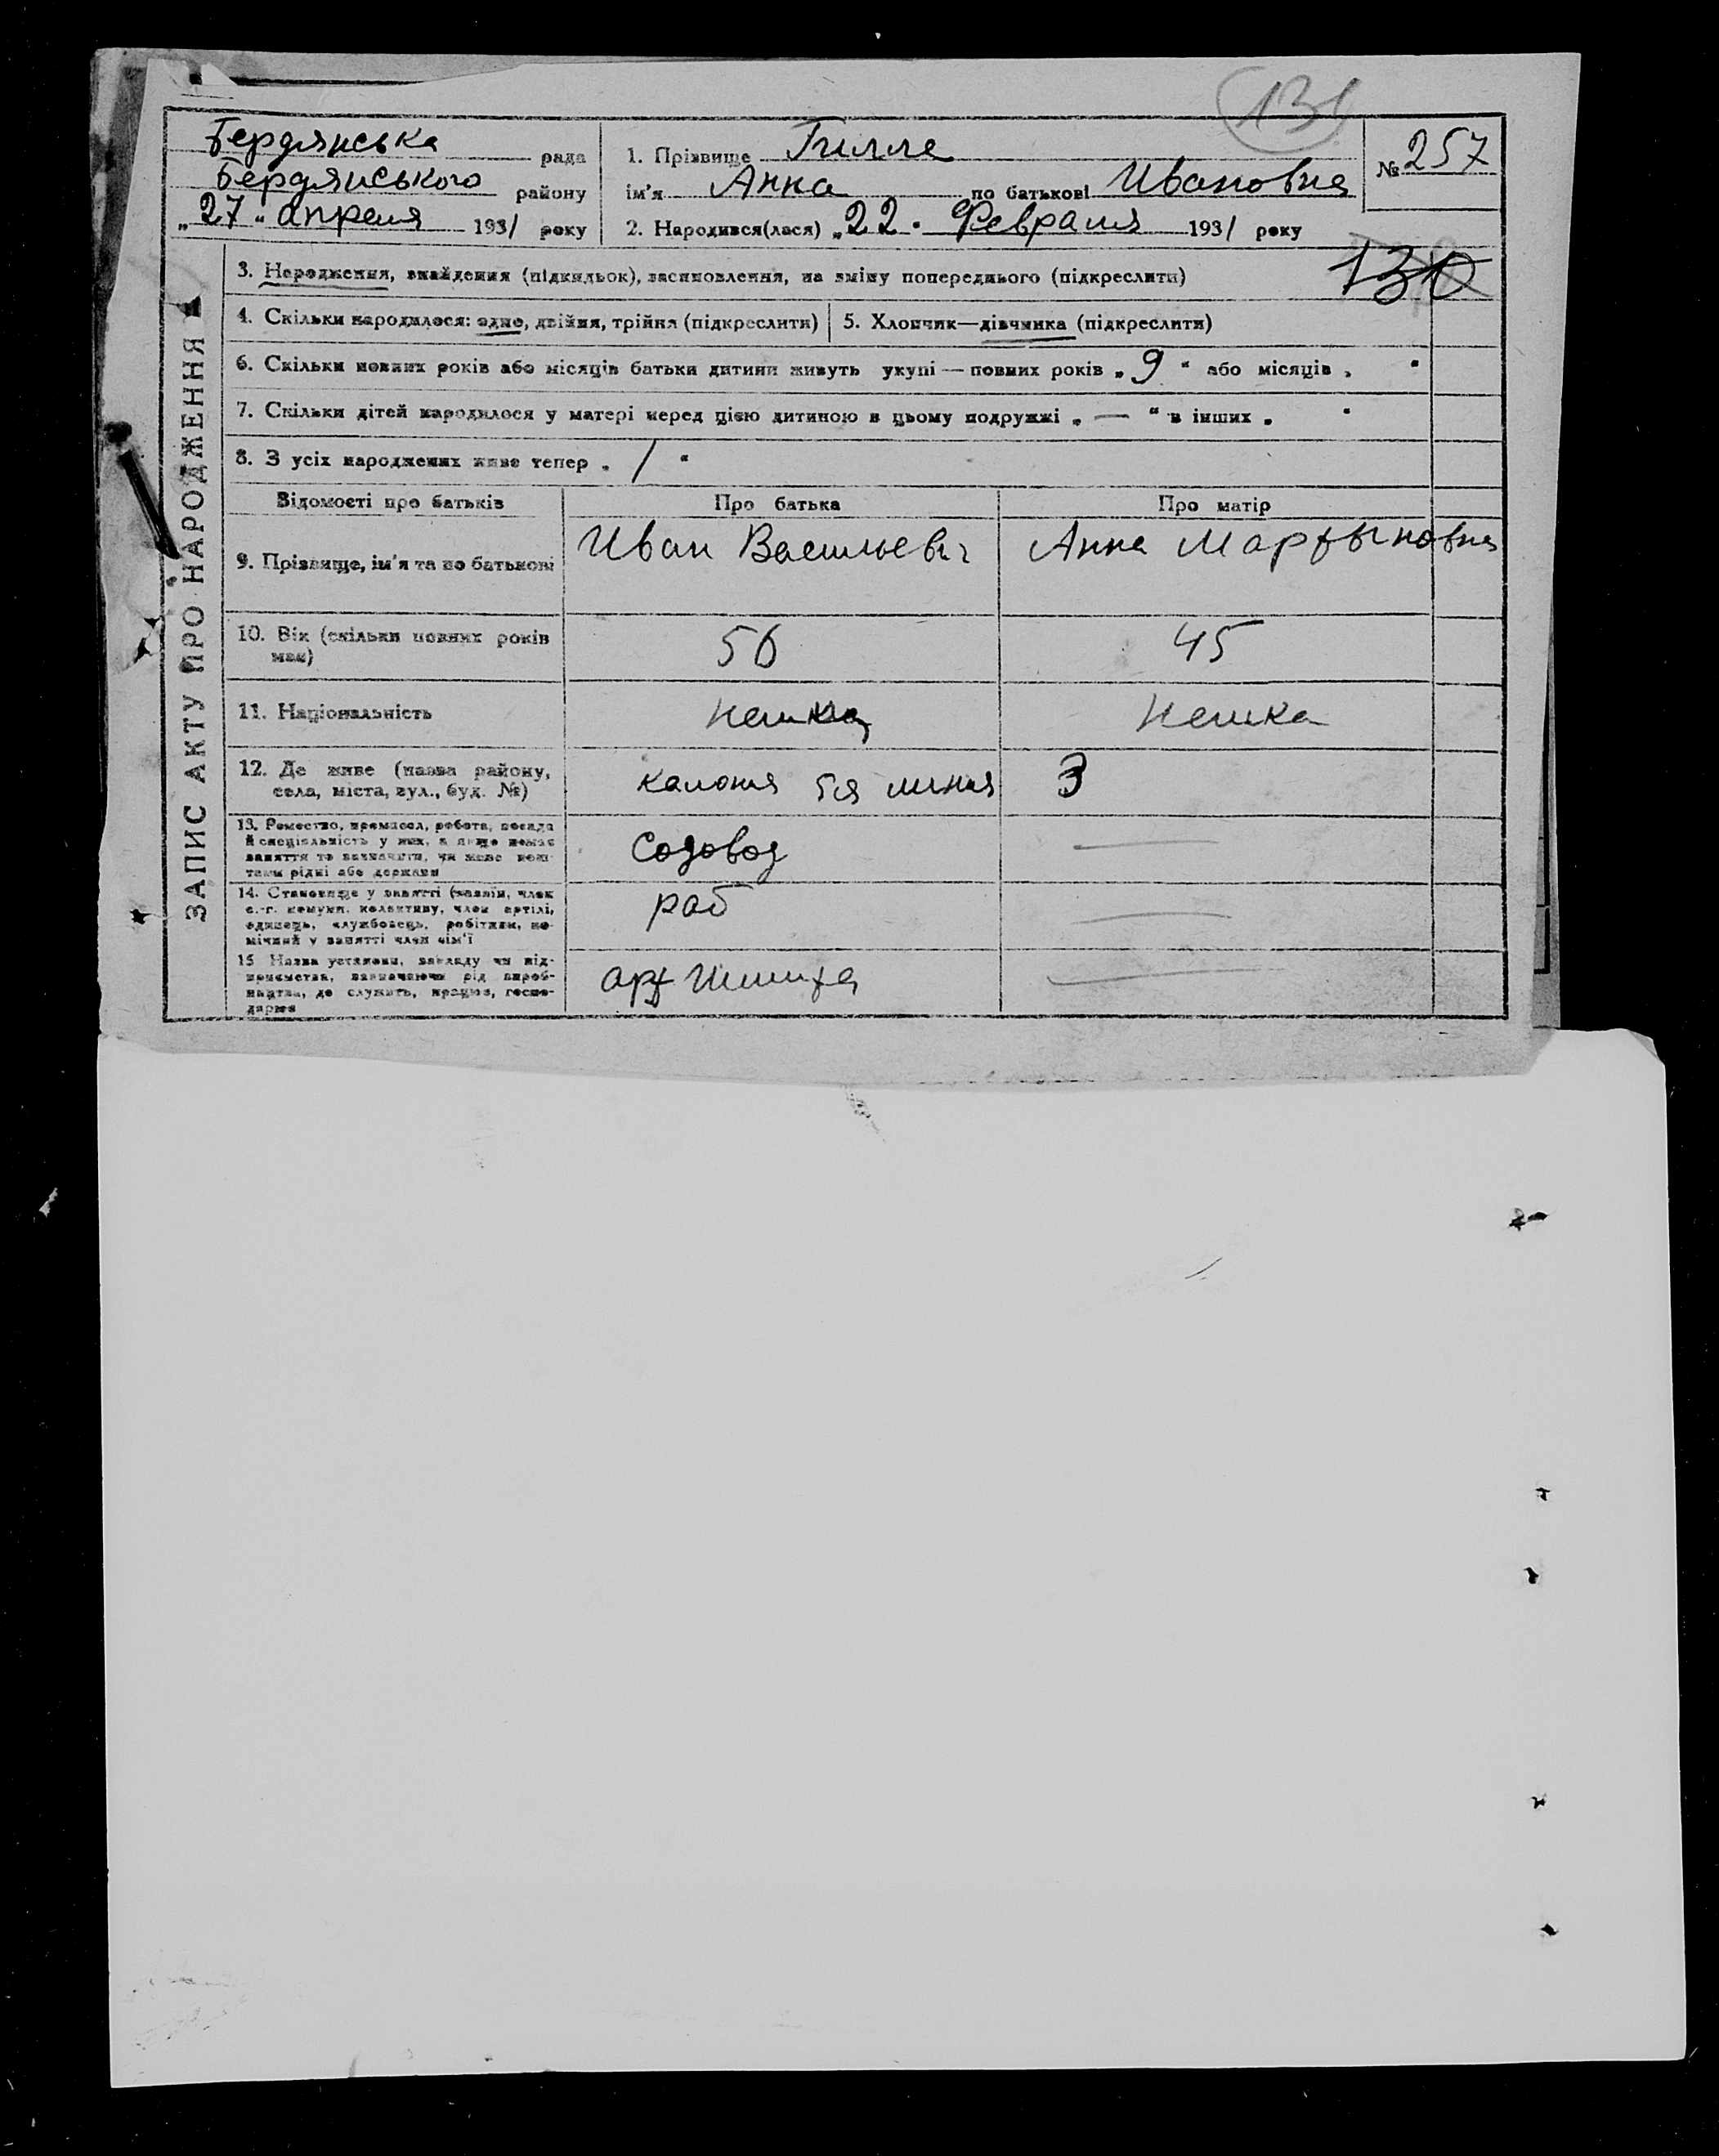 131
Бердянська рада
Бердянського району
„27“ апреля 1931 року
1. Прізвище Гилле
ім'я Анна по батькові Ивановна
2. Народився(лася) „22. Февраля 1931 року
№ 257
130
ЗАПИС АКТУ ПРО НАРОДЖЕННЯ
3. Народження, знайдення (підкидьок), засиновлення, на зміну попереднього (підкреслити)
4. Скільки народилося: одне, двійня, трійня (підкреслити)
5. Хлопчик—дівчинка (підкреслити)
6. Скільки повних років або місяців батьки дитини живуть укупі — повних років „9“ або місяців „ “
7. Скільки дітей народилося у матері перед цією дитиною в цьому подружжі „—“ в інших „ “
8. З усіх народжених живе тепер „1“
Відомості про батьків
Про батька
Про матір
9. Прізвище, ім'я та по батькові
Иван Васильевич
Анна Мартыновна
10. Вік (скільки повних років має)
56
45
11. Національність
немка
немка
12. Де живе (назва району, села, міста, вул., буд. №)
калония 5я линия
3
13. Ремество, промисел, робота, посада
й спеціяльність у них, а якщо немає
заняття то зазначити, чи живе кош-
тами рідні або держави
Садовод
14. Становище у занятті (хазяїн, член
с.-г. комуни, колективу, член артілі,
одинець, службовець, робітник, по-
мічний у занятті член сім'ї
раб
15 Назва установи, закладу чи під-
приємства, зазначаючи рід вироб-
ництва, де служить, працює, госпо-
дарює
арт